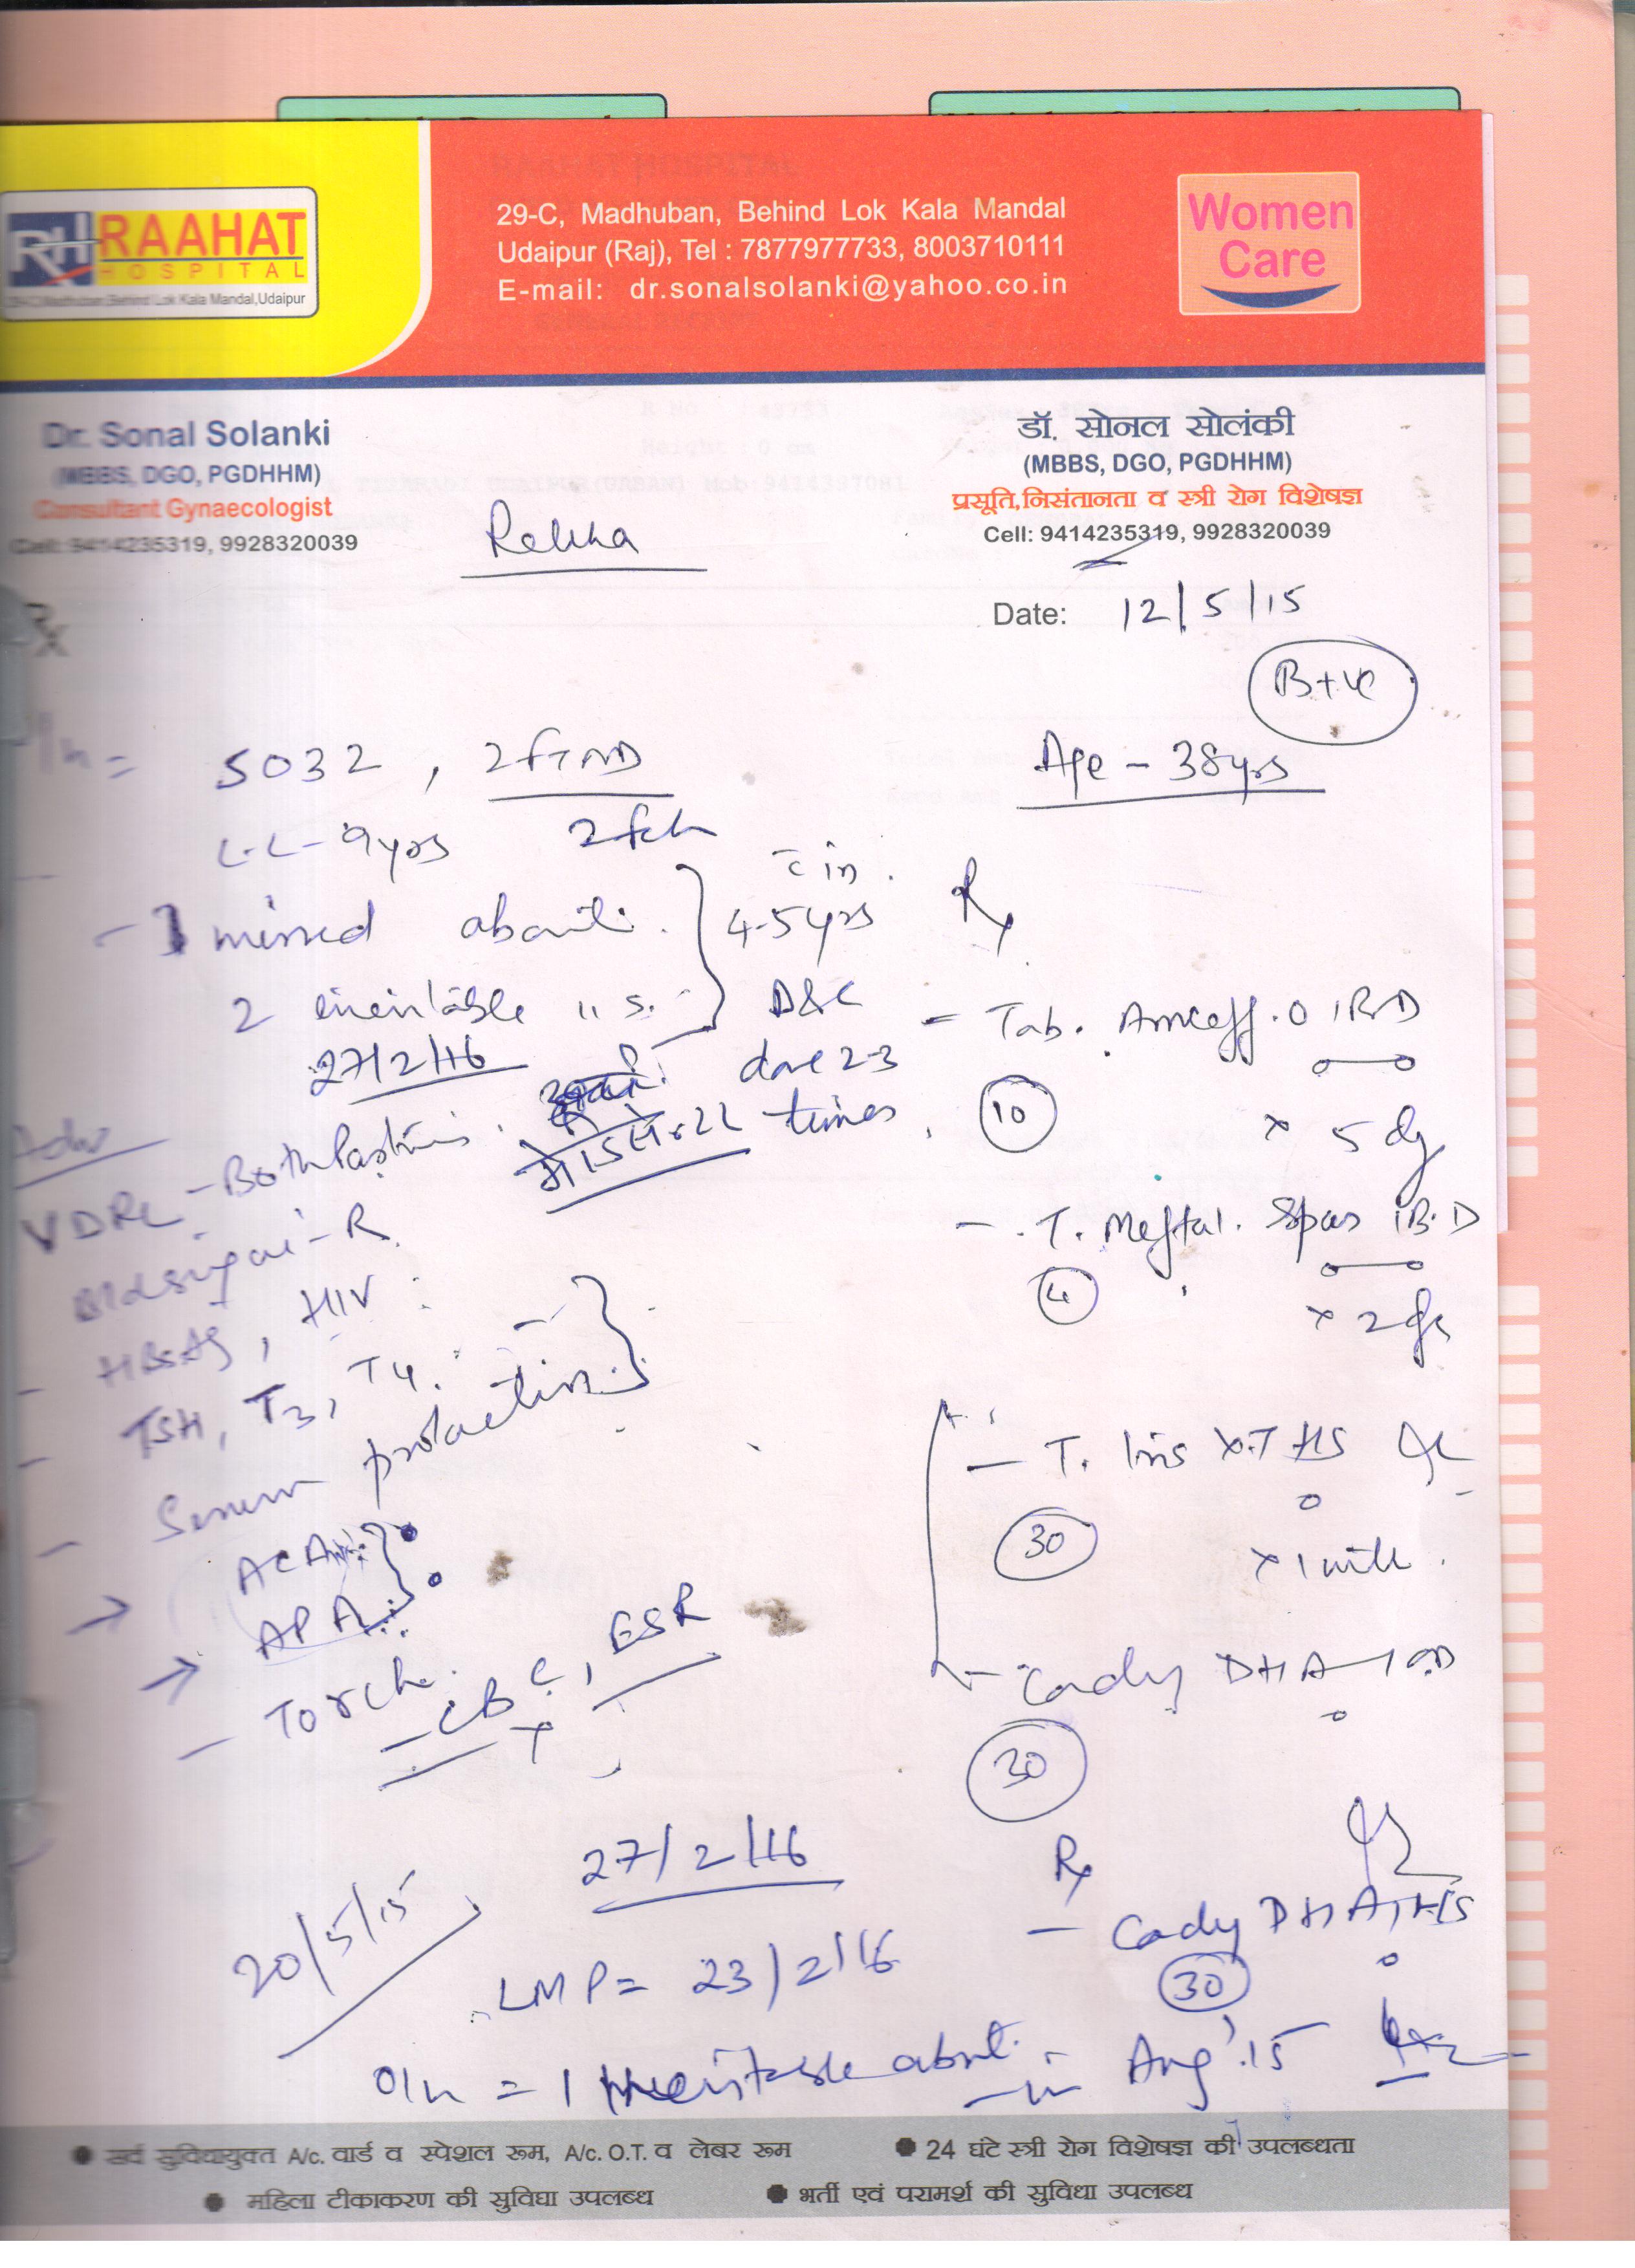 RH RAAHAT
HOSPITAL
Madhuban, Behind Lok Kala Mandal, Udaipur
29-C, Madhuban, Behind Lok Kala Mandal
Udaipur (Raj), Tel : 7877977733, 8003710111
E-mail: dr.sonalsolanki@yahoo.co.in
Women
Care
Dr. Sonal Solanki
(MBBS, DGO, PGDHHM)
Consultant Gynaecologist
Cell: 9414235319, 9928320039
डॉ. सोनल सोलंकी
(MBBS, DGO, PGDHHM)
प्रसूति,निसंतानता व स्त्री रोग विशेषज्ञ
Cell: 9414235319, 9928320039
Rekha
Date: 12/5/15
Rx
B+ve
Age - 38yrs
5032, 2FTND
L.L - 9yrs 2 fch
- 1 missed aborti. } c in 4.5yrs
2 inevitable 11 s. D&C
27/2/16 done 2-3
times.
Adv
VDRL - Both Partners.
Bld sugar - R
- HBsAg, HIV
- TSH, T3, T4.
- Serum prolactin
→ ACA
→ APA
- Torch.
- CBC, ESR
Rx
- Tab. Amceff.O 1BD
10 x 5 dy
- T. Meftal. Spas 1B.D
4 x 2 dys
- T. Iris XT HS
30 x 1 mth.
- Cady DHA - 1 OD
30
20/5/15
27/2/16
LMP = 23/2/16
O/H = 1 inevitable abort. in Aug'.15
Rx
- Cady DHA, HS
30
सर्व सुविधायुक्त A/c. वार्ड व स्पेशल रूम, A/c. O.T. व लेबर रूम
24 घंटे स्त्री रोग विशेषज्ञ की उपलब्धता
महिला टीकाकरण की सुविधा उपलब्ध
भर्ती एवं परामर्श की सुविधा उपलब्ध